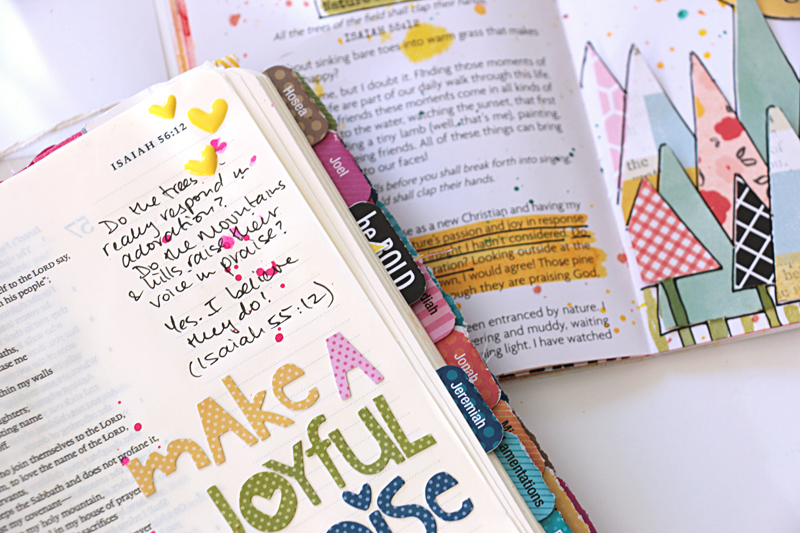 ISAIAH 56:12
Do the trees
really respond in
adoration?
Do the mountains
& hills raise their
voice in praise?
Yes. I believe
they do!
(Isaiah 55:12)
mAke A
JOYfUL
OISE
57
elf to the LORD say,
his people";
aths,
ase me
thin my walls
ghters;
ting name
off.
o join themselves to the LORD,
m, to love the name of the LORD,
rvants,
eps the Sabbath and does not profane it,
st my covenant—
my holy mountain,
in my house of prayer
sacrifices
Hosea
Joel
be BOLD
diah
Jonah
Jeremiah
Lamentations
All the trees of the field shall clap their hands.
ISAIAH 55:12
out sinking bare toes into warm grass that makes
happy?
me, but I doubt it. Finding those moments of
are part of our daily walk through this life.
friends these moments come in all kinds of
to the water, watching the sunset, that first
a tiny lamb (well, that's me), painting,
ng friends. All of these things can bring
to our faces!
ills before you shall break forth into singing,
ld shall clap their hands.
se as a new Christian and having my
ture's passion and joy in response
ght I hadn't considered. Do
ration? Looking outside at the
wn, I would agree! Those pine
ugh they are praising God.
een entranced by nature. I
ering and muddy, waiting
ing light. I have watched
the